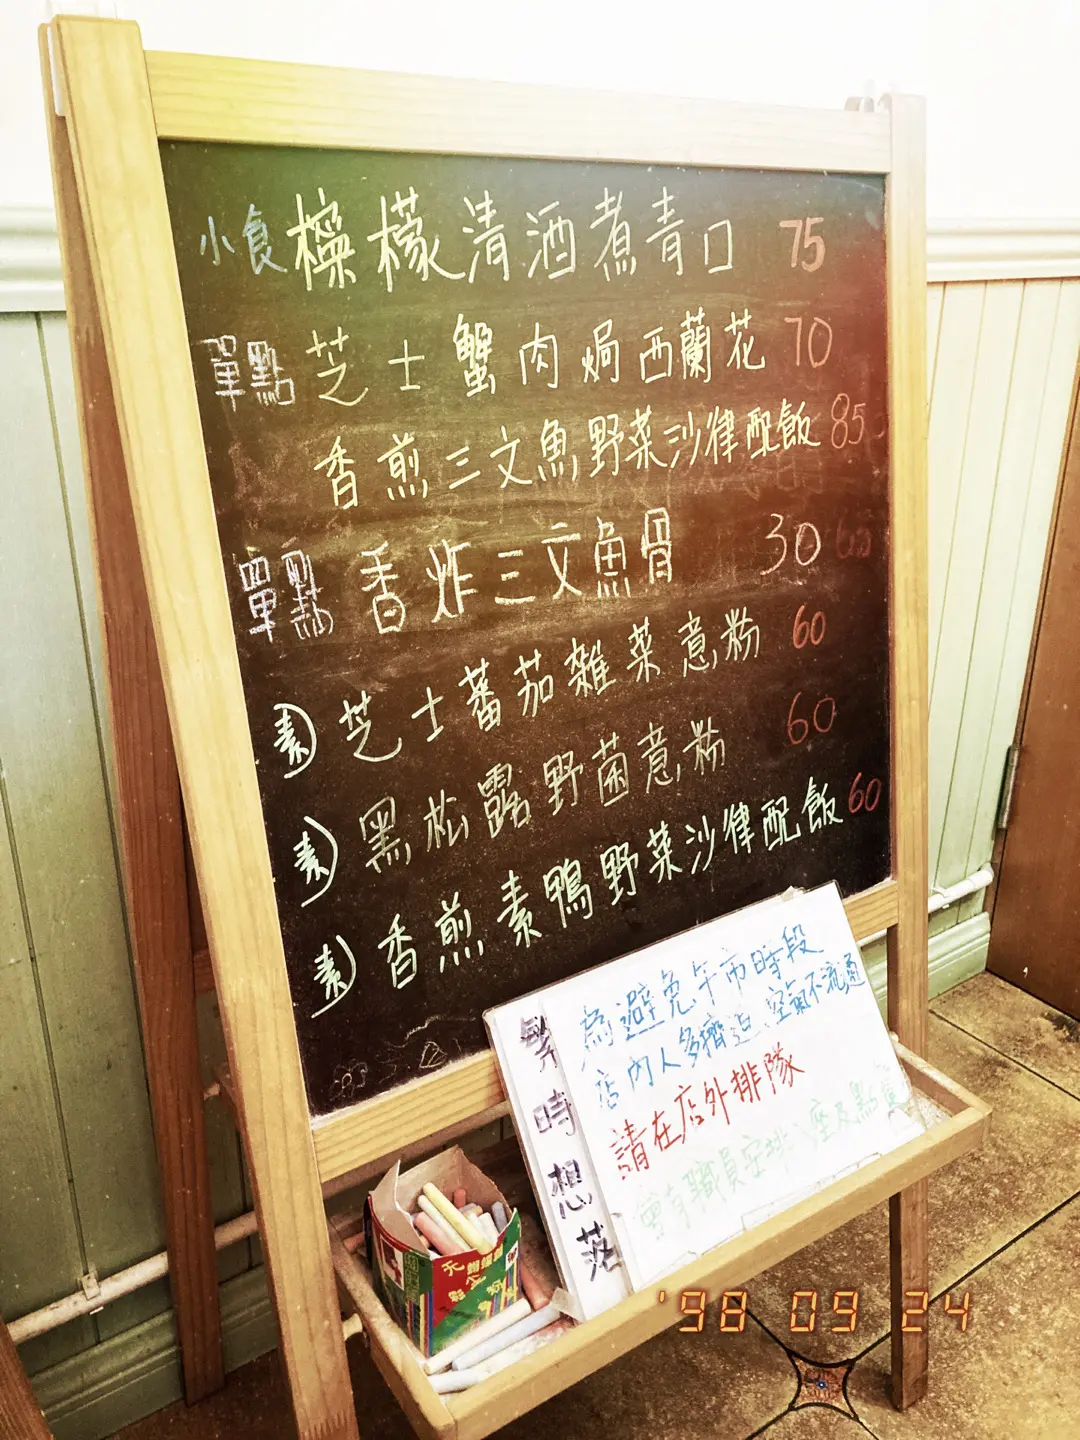 小食 檸檬清酒煮青口 75
單點 芝士蟹肉焗西蘭花 70
香煎三文魚野菜沙律配飯 85
單點 香炸三文魚骨 30
素 芝士蕃茄雜菜意粉 60
素 黑松露野菌意粉 60
素 香煎素鴨野菜沙律配飯 60
為避免午市時段
店內人多擠迫、空氣不流通
請在店外排隊
會有職員安排入座及點餐
繁時想落
'98 09 24